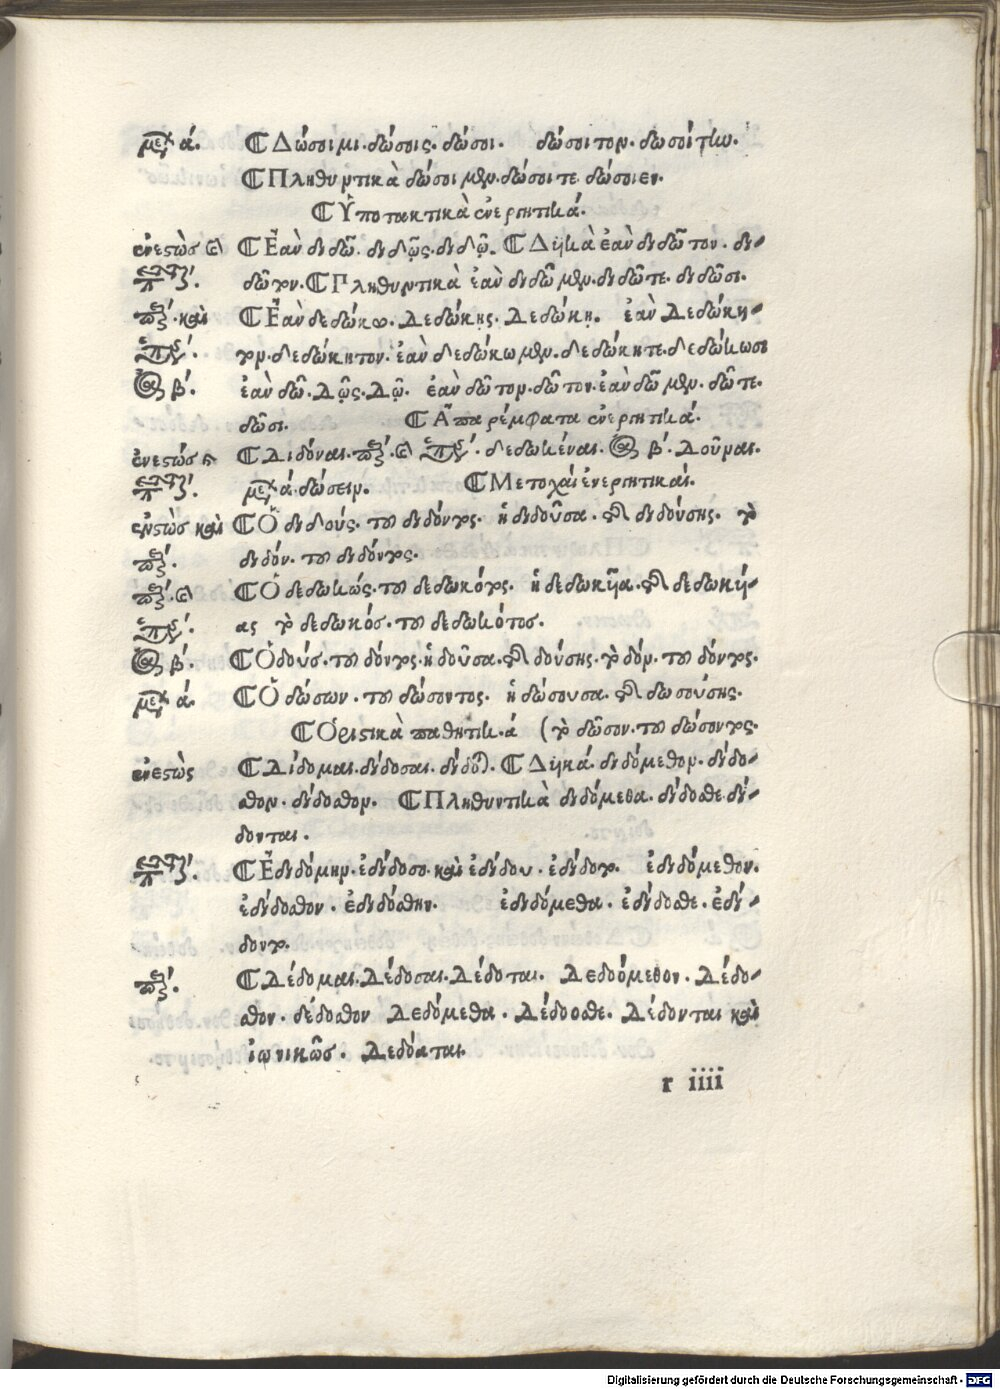 μελ ά. ¶Δώσοιμι. δώσοις. δώσοι. δώσοιτον. δωσοίτην.
¶Πληθυντικὰ δώσοιμεν. δώσοιτε δώσοιεν.
¶Ὑποτακτικὰ ἐνεργητικά.
ἐνεστὼς καὶ ¶Ἐὰν διδῶ. διδῷς. διδῷ. ¶Δυϊκὰ ἐὰν διδῶτον. δι-
δῶτον. ¶Πληθυντικὰ ἐὰν διδῶμεν. διδῶτε. διδῶσι.
καὶ ¶Ἐὰν δεδώκω. δεδώκῃς. δεδώκῃ. ἐὰν δεδώκη-
τον. δεδώκητον. ἐὰν δεδώκωμεν. δεδώκητε. δεδώκωσι
β´. ἐὰν δῶ. δῷς. δῷ. ἐὰν δῶτον. δῶτον. ἐὰν δῶμεν. δῶτε.
δῶσι. ¶Ἀπαρέμφατα ἐνεργητικά.
ἐνεστώς ¶Διδόναι. καὶ δεδωκέναι. β´. δοῦναι.
μελ ά. δώσειν. ¶Μετοχαὶ ἐνεργητικαί.
ἐνεστὼς καὶ ¶Ὁ διδούς. τοῦ διδόντος. ἡ διδοῦσα. τῆς διδούσης. τὸ
διδόν. τοῦ διδόντος.
καὶ ¶Ὁ δεδωκώς. τοῦ δεδωκότος. ἡ δεδωκῦα. τῆς δεδωκύ-
ας τὸ δεδωκός. τοῦ δεδωκότος.
β´. ¶Ὁ δούς. τοῦ δόντος. ἡ δοῦσα. τῆς δούσης. τὸ δόν. τοῦ δόντος.
μελ ά. ¶Ὁ δώσων. τοῦ δώσοντος. ἡ δώσουσα. τῆς δωσούσης.
¶Ὁριστικὰ παθητικά (τὸ δῶσον. τοῦ δώσοντος.
ἐνεστὼς ¶Δίδομαι. δίδοσαι. δίδοται. ¶Δυϊκά. διδόμεθον. δίδο-
σθον. δίδοσθον. ¶Πληθυντικὰ διδόμεθα. δίδοσθε. δί-
δονται.
¶Ἐδιδόμην. ἐδίδοσο. καὶ ἐδίδου. ἐδίδοτο. ἐδιδόμεθον.
ἐδίδοσθον. ἐδιδόσθην. ἐδιδόμεθα. ἐδίδοσθε. ἐδί-
δοντο.
¶Δέδομαι. δέδοσαι. δέδοται. δεδόμεθον. δέδο-
σθον. δέδοσθον δεδόμεθα. δέδοσθε. δέδονται καὶ
ἰωνικῶς. δεδόαται.
r iiii
Digitalisierung gefördert durch die Deutsche Forschungsgemeinschaft - DFG